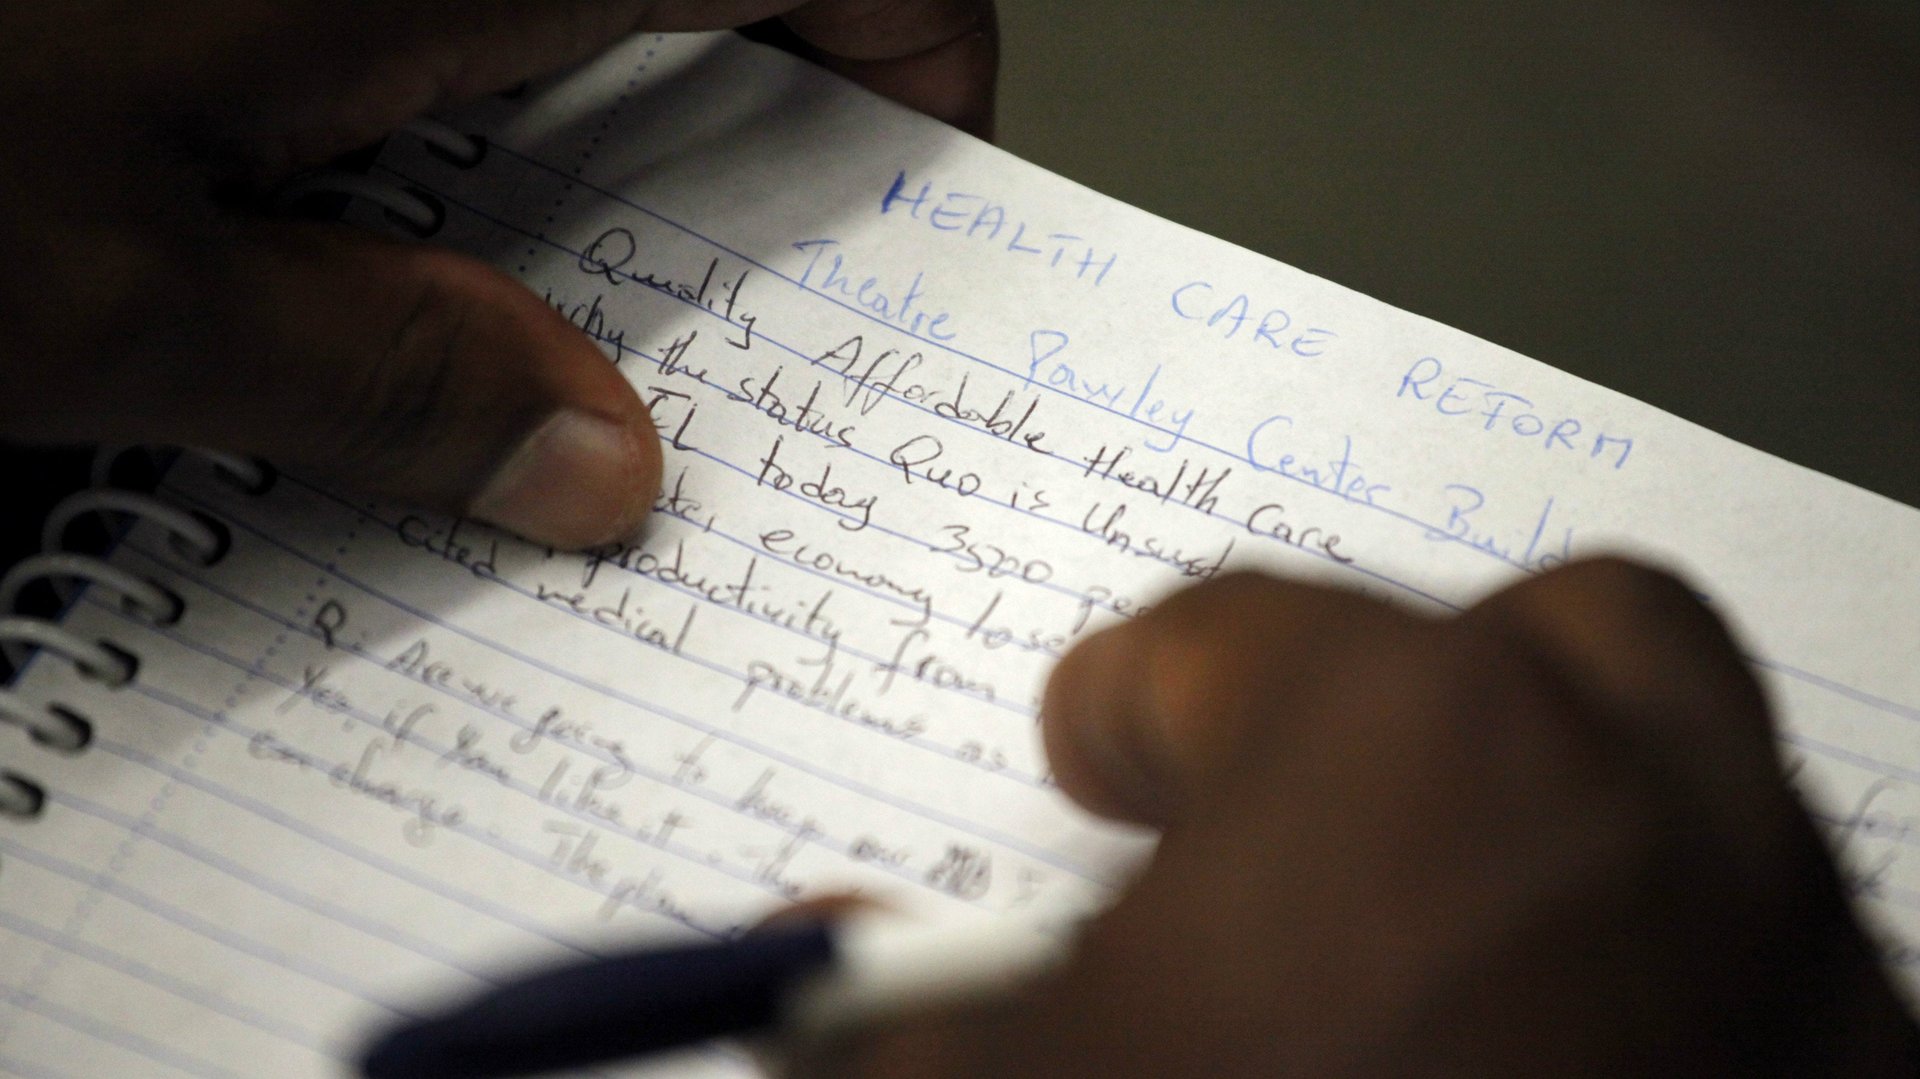 HEALTH CARE REFORM
Theatre Pawley Center Build
Quality Affordable Health Care
why the status Quo is Unsust
FL today 3500 peo
economy lose
productivity from
cited medical problems as
Q. Are we going to keep our
Yes, if you like it. The
can change. The plan
for